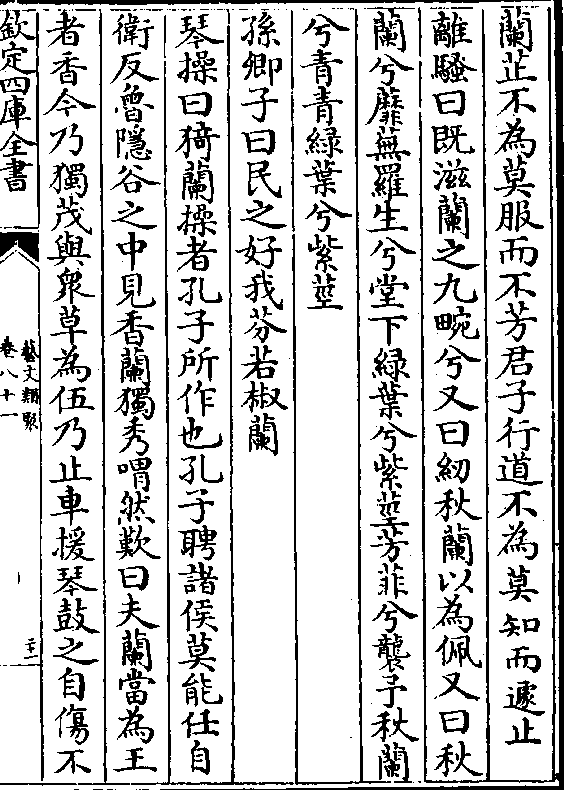 蘭芷不為莫服而不芳君子行道不為莫知而遽止
離騷曰既滋蘭之九畹兮又曰紉秋蘭以為佩又曰秋
蘭兮蘼蕪羅生兮堂下緑葉兮紫莖芳菲兮襲予秋蘭
兮青青緑葉兮紫莖
孫卿子曰民之好我芬若椒蘭
琴操曰猗蘭操者孔子所作也孔子聘諸侯莫能任自
衛反魯隱谷之中見香蘭獨秀喟然歎曰夫蘭當為王
者香今乃獨茂與衆草為伍乃止車援琴鼓之自傷不
欽定四庫全書
藝文類聚
卷八十一
二十一